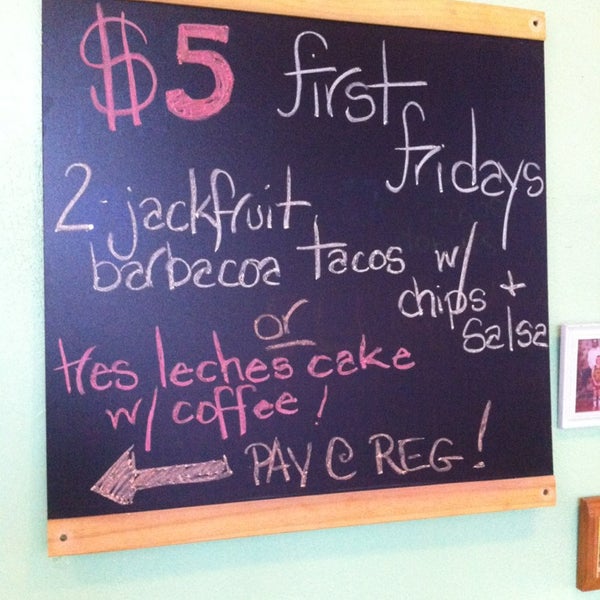 $5 first
fridays
2 jackfruit
barbacoa tacos w/
chips +
salsa
or
tres leches cake
w/ coffee!
PAY @ REG!